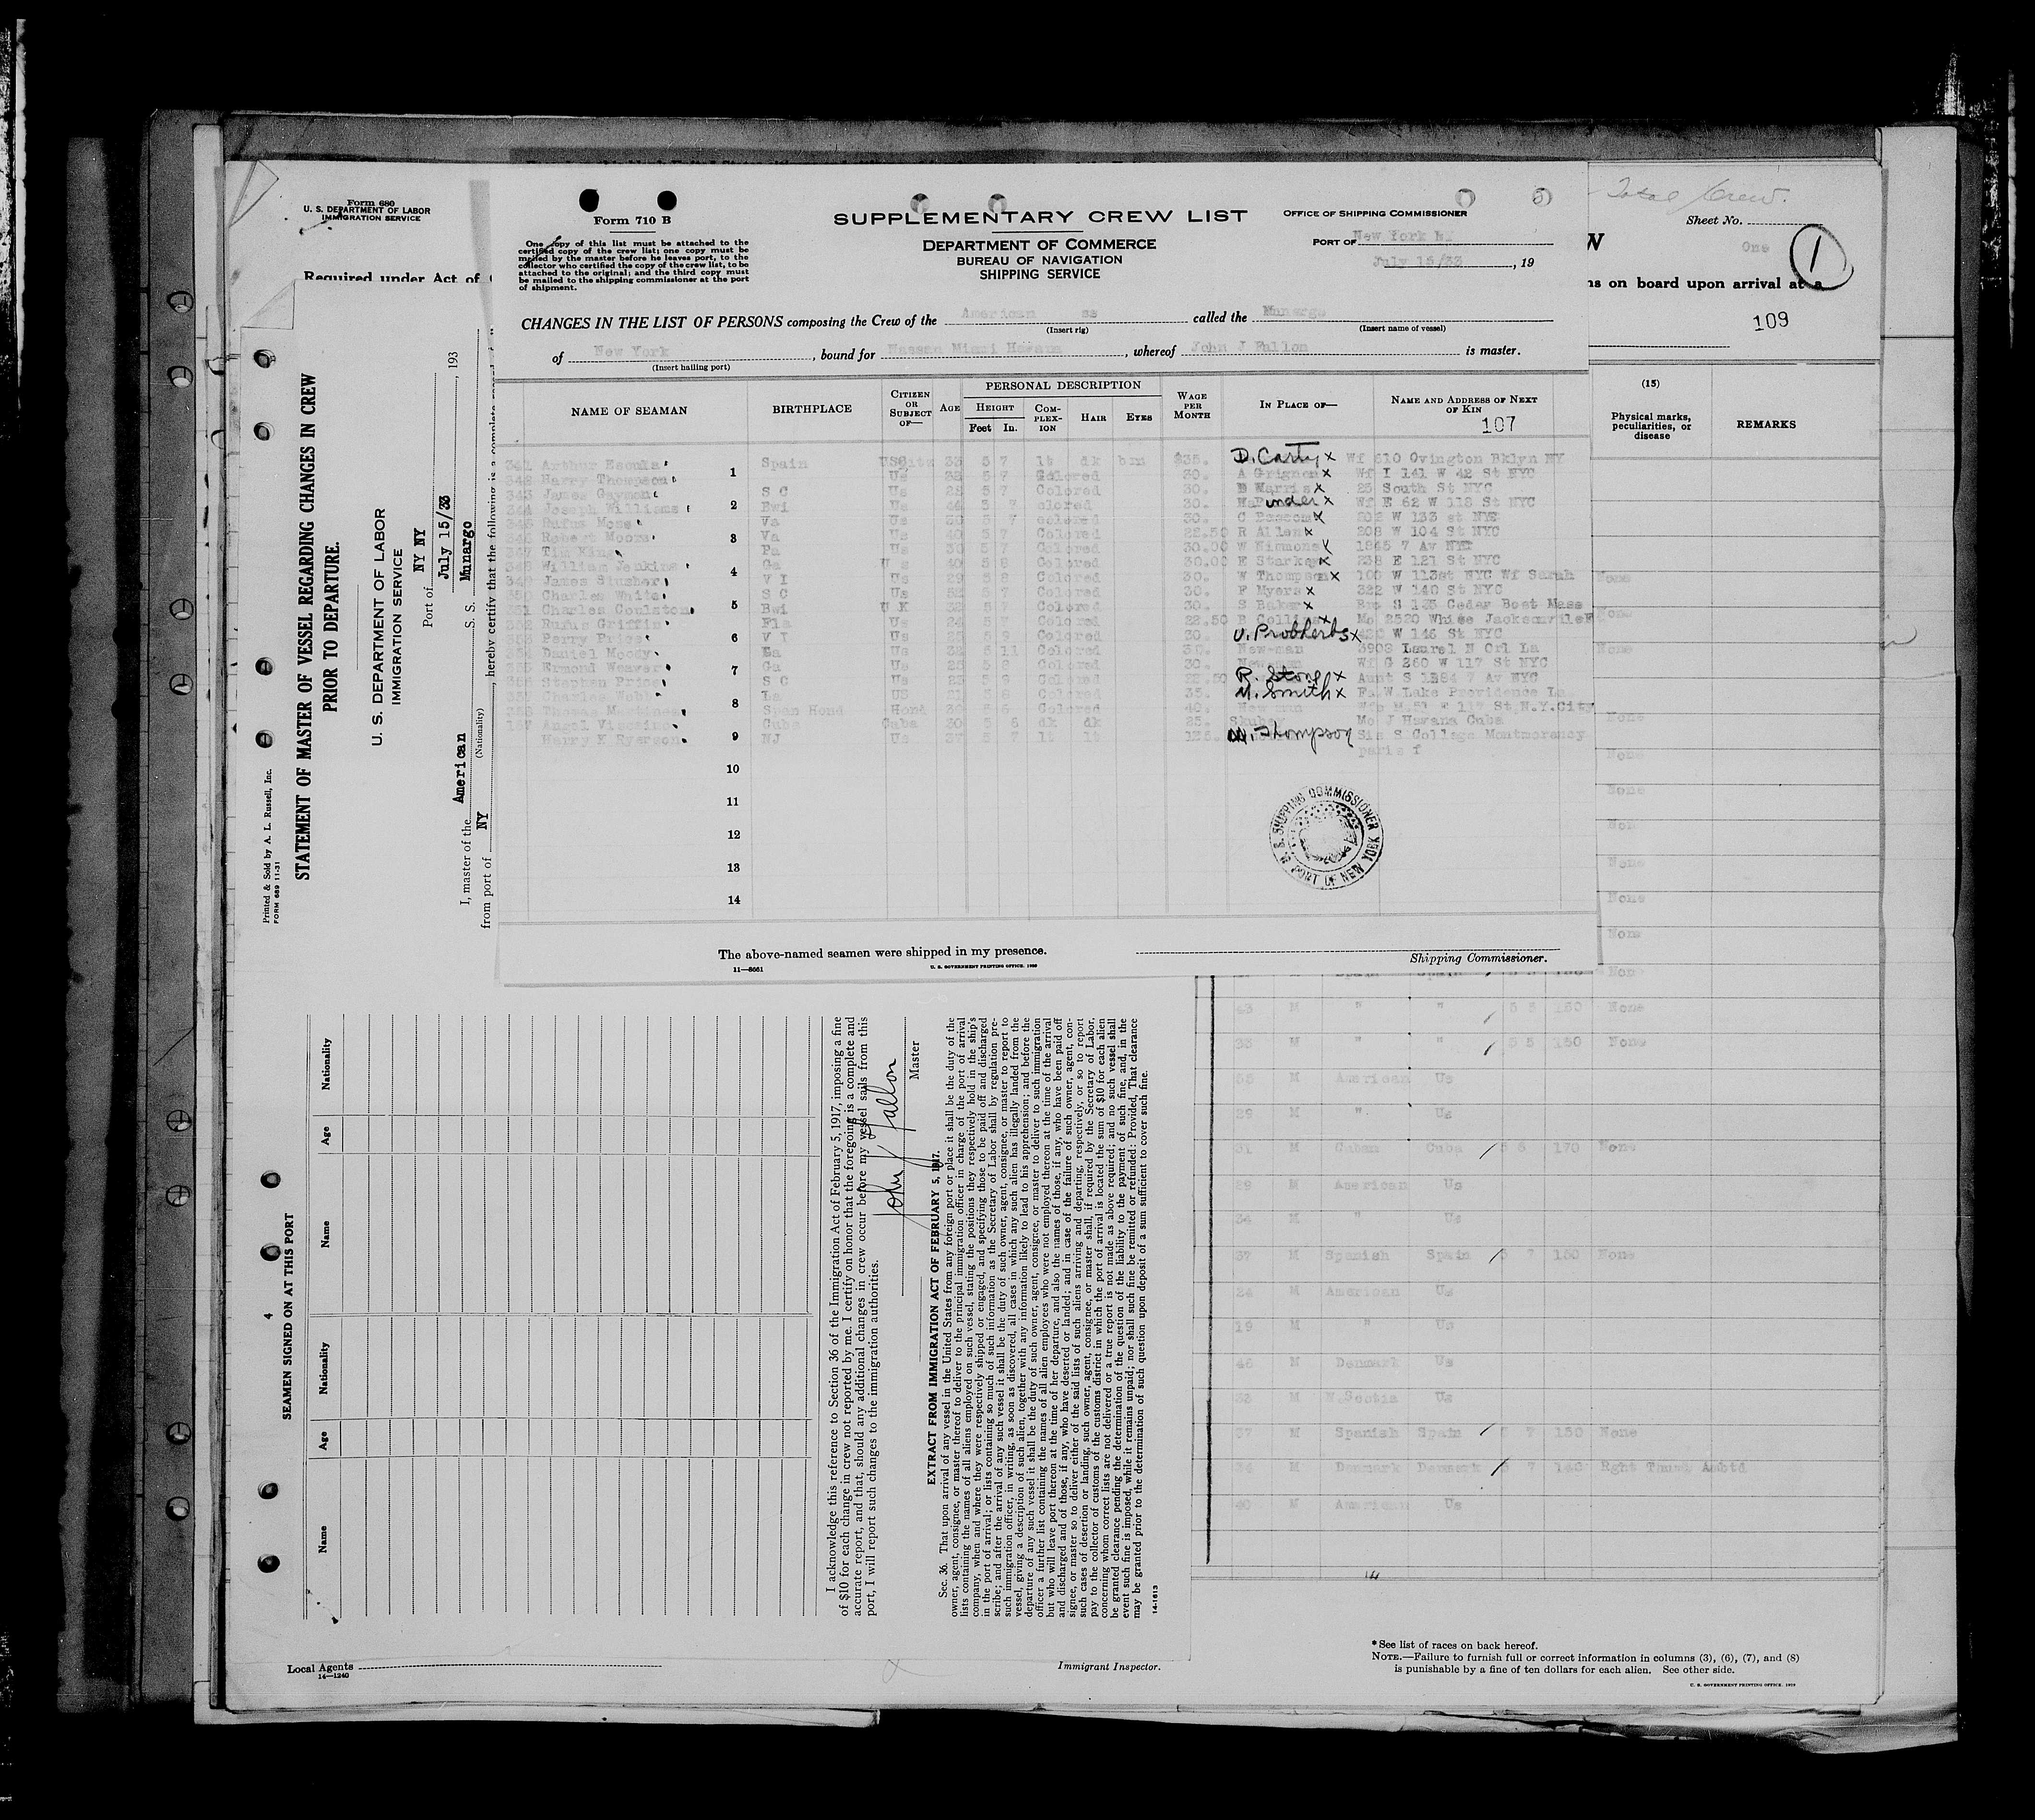 Form 680
U. S. DEPARTMENT OF LABOR
IMMIGRATION SERVICE
Required under Act of
Form 710 B
One copy of this list must be attached to the
certified copy of the crew list; one copy must be
mailed by the master before he leaves port, to the
collector who certified the copy of the crew list, to be
attached to the original; and the third copy must
be mailed to the shipping commissioner at the port
of shipment.
SUPPLEMENTARY CREW LIST
DEPARTMENT OF COMMERCE
BUREAU OF NAVIGATION
SHIPPING SERVICE
OFFICE OF SHIPPING COMMISSIONER
PORT OF New York NY
July 15/33, 19
CHANGES IN THE LIST OF PERSONS composing the Crew of the American ss called the Munargo
(Insert rig) (Insert name of vessel)
of New York, bound for Nassau Miami Havana, whereof John J Fallon is master.
(Insert hailing port)
NAME OF SEAMAN
BIRTHPLACE
CITIZEN OR SUBJECT OF—
AGE
PERSONAL DESCRIPTION
HEIGHT
Feet In.
COM-PLEX-ION
HAIR
EYES
WAGE PER MONTH
IN PLACE OF—
NAME AND ADDRESS OF NEXT OF KIN
107
Arthur Escula Spain 33 5 7 lt dk brn $35. D. Carty x Wf 610 Ovington Bklyn NY
Harry Thompson Us 32 5 7 Colored 30. A Grignon x Wf I 141 W 42 St NYC
343 James Gayman S C Us 5 7 Colored 30. x 25 South St NYC
Joseph Williams Bwi Us 44 5 7 30. x Wf E 62 W 118 St NYC
Rufus Mose Va Us 30 5 7 colored 30. x W 133 st
Robert Moore Va Us 40 5 7 Colored 22.50 R Allen x 208 W 104 St NYC
Tim King Pa Us 30 5 7 Colored 30.00 W Simmons x 1845 7 Av
William Jenkins Ga U s 40 5 8 Colored 30.00 E Starke x 238 E 121 St NYC
James Slusher V I Us 29 5 8 Colored 30. W Thompson x 100 W 113st NYC Wf Sarah
Charles White S C Us 5 7 Colored 30. F Myers x 322 W 140 St NYC
351 Charles Coulston Bwi U K 32 5 7 Colored 30. S Baker x Bro S 135 Cedar Bost Mass
Rufus Griffin Fla Us 24 5 7 Colored 22.50 x Mo 2520 White Jacksonville F
Perry Price V I Us 5 9 Colored 30. x W 146 St NYC
Daniel Moody Us 32 5 11 Colored Newman 3908 Laurel N Orl La
Ermond Weaver Ga Us 5 8 Colored 30. Wf G 260 W 117 St NYC
Stephen Price S C Us 5 9 Colored R. Stong x Aunt S 1884 7 Av NYC
Charles Webb La US 21 5 8 Colored 35. Smith x Fa W Lake Providence La
Thomas Martinez Span Hond Hond 30 5 6 Colored 40. Newman 51 W 117 St N.Y.City
Angel Viscaino Cuba Cuba 30 5 6 dk dk 25. Mo J Havana Cuba
Henry K Ryerson NJ Us 37 5 7 lt lt M. Thompson Sis S College Montmorency
paris f
1
2
3
4
5
6
7
8
9
10
11
12
13
14
U. S. SHIPPING COMMISSIONER
PORT OF NEW YORK
The above-named seamen were shipped in my presence.
Shipping Commissioner.
11—8661
U. S. GOVERNMENT PRINTING OFFICE
Total Crew.
Sheet No.
One
1
W
ns on board upon arrival at a
109
(15)
Physical marks, peculiarities, or disease
REMARKS
None
None
None
None
None
None
None
None
None
None
43 M " " 5 5 150 None
35 M " " 5 5 150 None
M American Us
M " Us
31 M Cuban Cuba 5 6 170 None
29 M American Us
34 M " Us
37 M Spanish Spain 5 7 150 None
24 M American Us
19 M " Us
46 M Denmark Us
33 M N.Scotia Us
37 M Spanish Spain 5 7 150 None
M Denmark Denmark 5 7 140 Rght Thumb Ambtd
40 M American Us
*See list of races on back hereof.
NOTE.—Failure to furnish full or correct information in columns (3), (6), (7), and (8)
is punishable by a fine of ten dollars for each alien. See other side.
Printed & Sold by A. L. Russell, Inc.
FORM 689 11-31
STATEMENT OF MASTER OF VESSEL REGARDING CHANGES IN CREW
PRIOR TO DEPARTURE.
U. S. DEPARTMENT OF LABOR
IMMIGRATION SERVICE
Port of NY NY
July 15/33, 193
I, master of the American S. S. Munargo
(Nationality)
from port of NY, hereby certify that the following is a complete
4
SEAMEN SIGNED ON AT THIS PORT
Name Age Nationality Name Age Nationality
I acknowledge this reference to Section 36 of the Immigration Act of February 5, 1917, imposing a fine
of $10 for each change in crew not reported by me. I certify on honor that the foregoing is a complete and
accurate report, and that, should any additional changes in crew occur before my vessel sails from this
port, I will report such changes to the immigration authorities.
John J Fallon
Master
EXTRACT FROM IMMIGRATION ACT OF FEBRUARY 5, 1917.
Sec. 36. That upon arrival of any vessel in the United States from any foreign port or place it shall be the duty of the
owner, agent, consignee, or master thereof to deliver to the principal immigration officer in charge of the port of arrival
lists containing the names of all aliens employed on such vessel, stating the positions they respectively hold in the ship's
company, when and where they were respectively shipped or engaged, and specifying those to be paid off and discharged
in the port of arrival; or lists containing so much of such information as the Secretary of Labor shall by regulation pre-
scribe; and after the arrival of any such vessel it shall be the duty of such owner, agent, consignee, or master to report to
such immigration officer, in writing, as soon as discovered, all cases in which any such alien has illegally landed from the
vessel, giving a description of such alien, together with any information likely to lead to his apprehension; and before the
departure of any such vessel it shall be the duty of such owner, agent, consignee, or master to deliver to such immigration
officer a further list containing the names of all alien employees who were not employed thereon at the time of the arrival
but who will leave port thereon at the time of her departure, and also the names of those, if any, who have been paid off
and discharged and of those, if any, who have deserted or landed; and in case of the failure of such owner, agent, con-
signee, or master so to deliver either of the said lists of such aliens arriving and departing, respectively, or so to report
such cases of desertion or landing, such owner, agent, consignee, or master shall, if required by the Secretary of Labor,
pay to the collector of customs of the customs district in which the port of arrival is located the sum of $10 for each alien
concerning whom correct lists are not delivered or a true report is not made as above required; and no such vessel shall
be granted clearance pending the determination of the question of the liability to the payment of such fine, and, in the
event such fine is imposed, while it remains unpaid; nor shall such fine be remitted or refunded: Provided, That clearance
may be granted prior to the determination of such question upon deposit of a sum sufficient to cover such fine.
14-1613
Local Agents
14—1240
Immigrant Inspector.